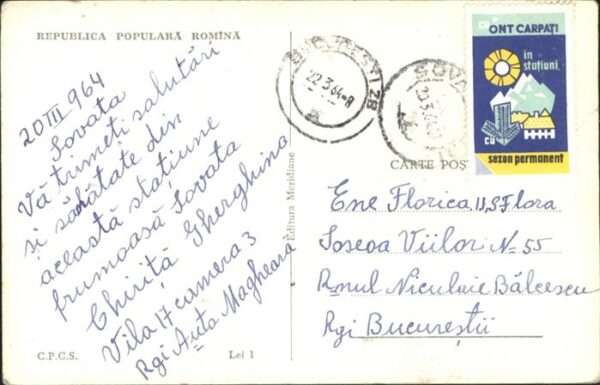 REPUBLICA POPULARĂ ROMÎNĂ
20 III 964
Sovata
Vă trimeti salutări
și sănătate din
această stațiune
frumoasă Sovata
Chiriță Gherghina
Vila 17 camera 3
Rgi Auta Magheară
C.P.C.S.
Lei 1
Editura Meridiane
BUCUREȘTI Z8
22.3.64-8
SOVA
ONT CARPAȚI
în
stațiuni
cu
sezon permanent
CARTE POȘ
Ene Florica IS, Flora
Soseoa Viilor N=55
Rnul Niculaie Bălcescu
Rgi Bucureștii